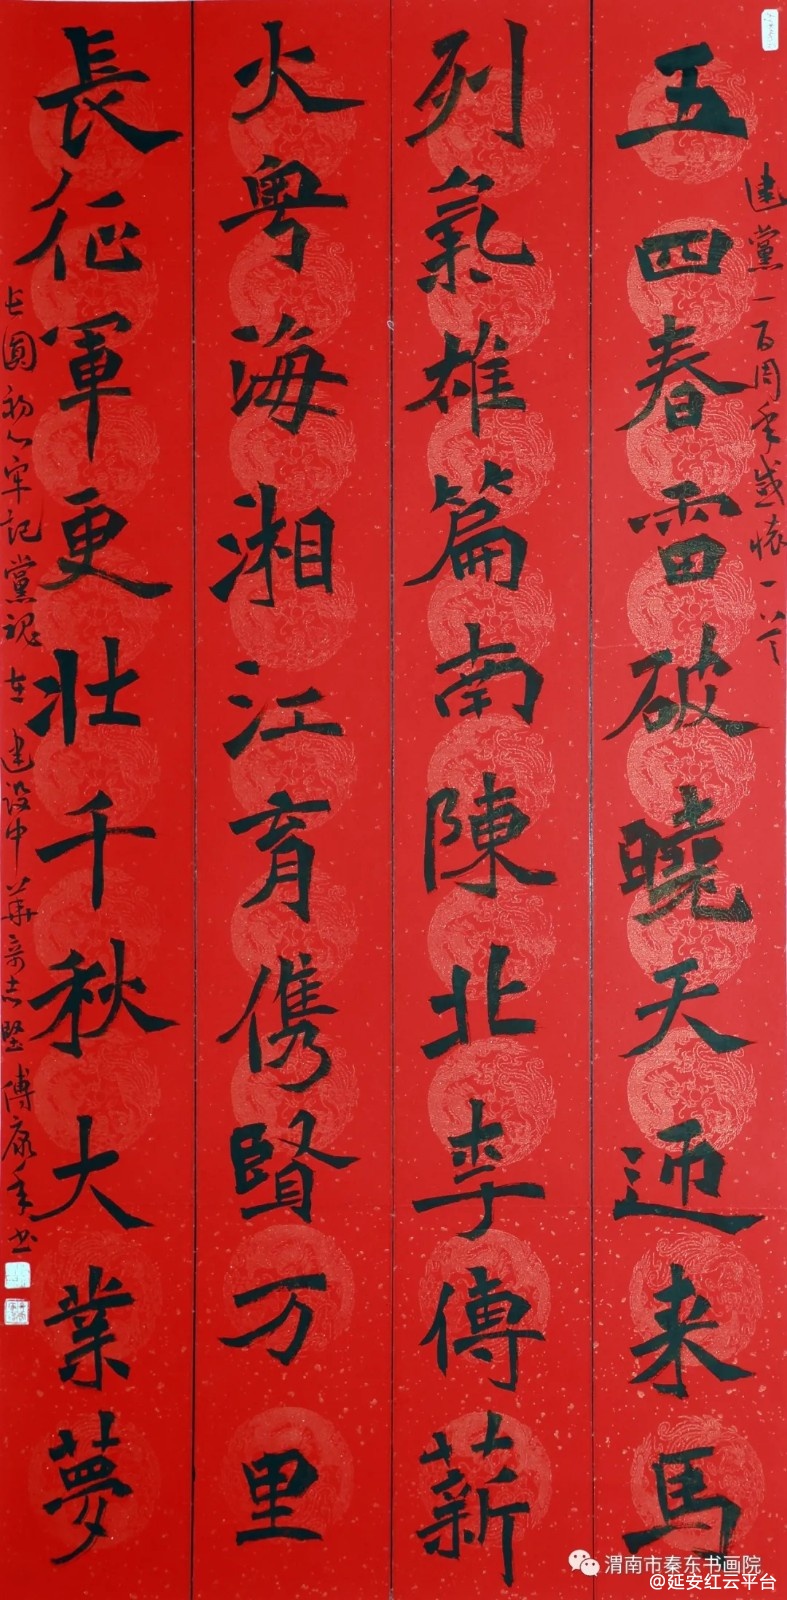 建黨一百周年感懷一首
五四春雷破曉天迊来馬
列氣雄篇南陳北李傳薪
火粤海湘江育儁賢万里
長征軍更壯千秋大業夢
长圓初心牢記黨魂在建設中華奇志堅傅康年书
渭南市秦东书画院
@延安红云平台